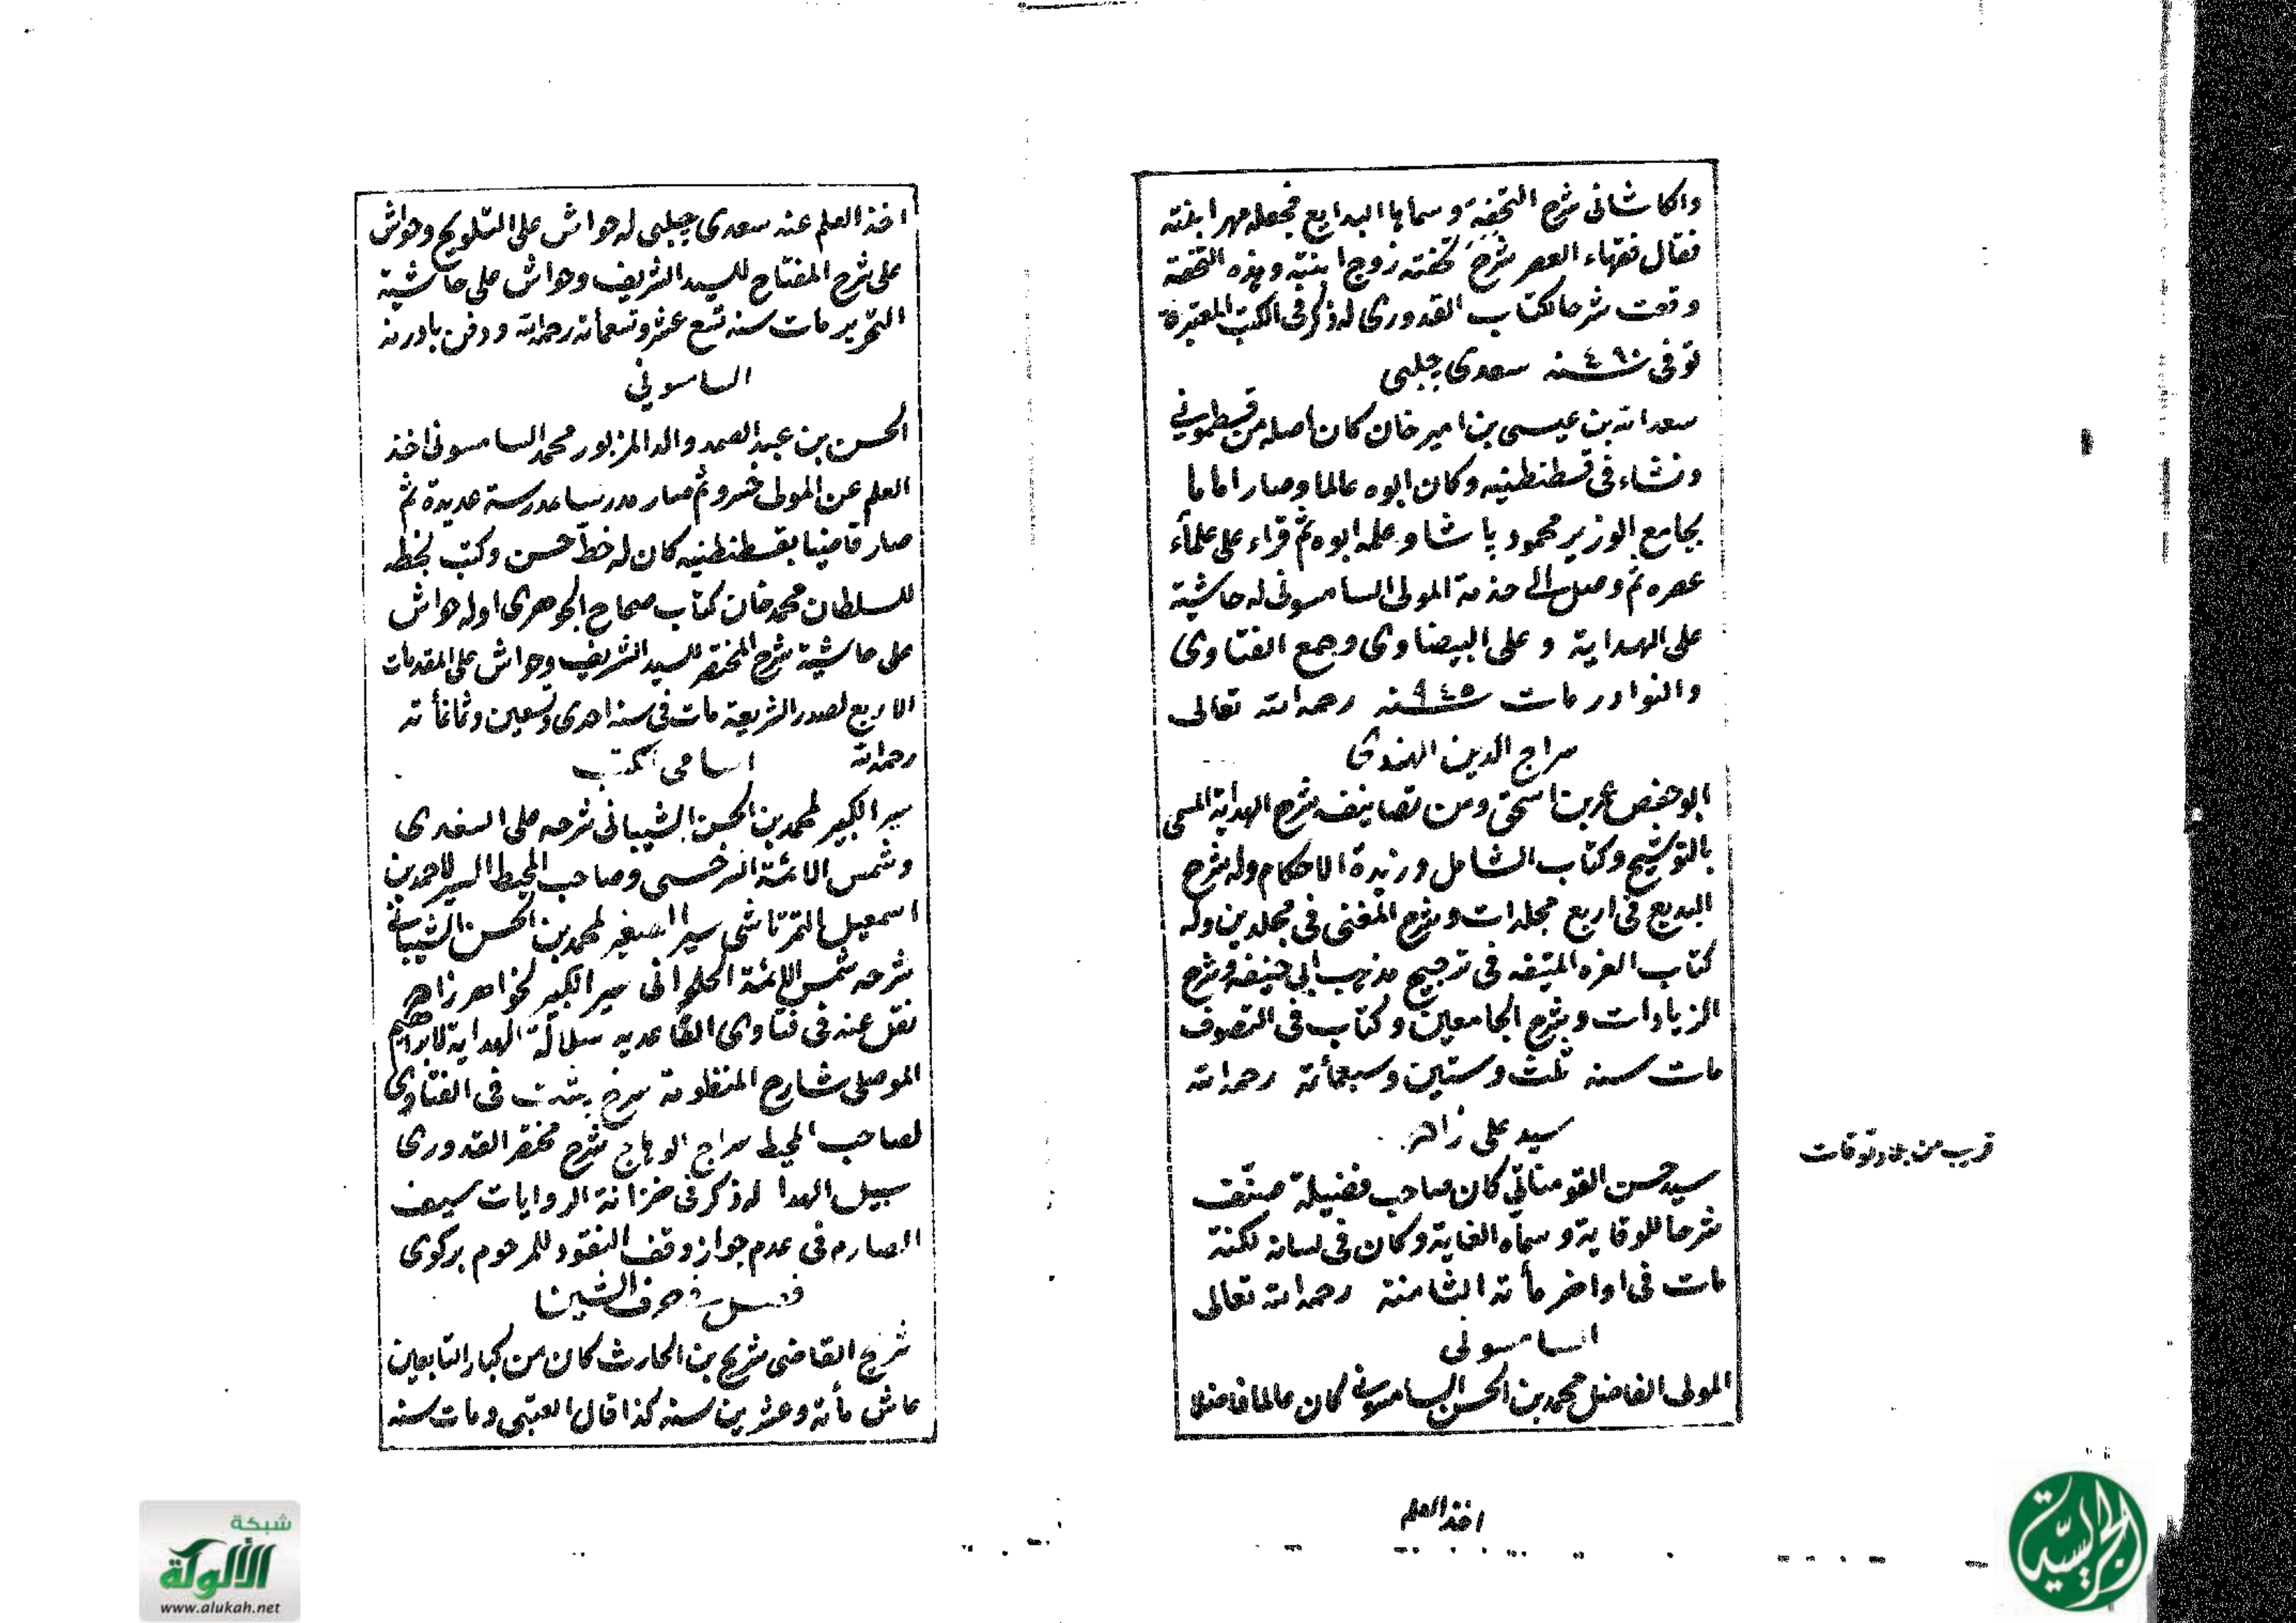 والكاشانى شرح التحفة وسماها البدايع فجعله مهر ابنته
فقال فقهاء العصر شرح تحفته زوج ابنته وهذه التحفة
وقعت شرحا لكتاب القدورى له ذكر فى الكتب المعتبرة
توفى سنة ٤٩٠ سعدى چلبى
سعد الله بن عيسى بن امير خان كان اصله من قسطمونى
ونشاء فى قسطنطنيه وكان ابوه عالما وصار اماما
بجامع الوزير محمود پاشا وعلمه ابوه ثم قراء على علماء
عصره ثم وصل الى خدمة المولى السامسونى له حاشية
على الهداية و على البيضاوى وجمع الفتاوى
والنوادر مات سنة ٩٤٥ رحمه الله تعالى
سراج الدين الهندى
ابو حفص عمر بن اسحق ومن تصانيفه شرح الهداية المسمى
بالتوشيح وكتاب الشامل وزبدة الاحكام وله شرح
البديع فى اربع مجلدات وشرح المغنى فى مجلدين وله
كتاب الغره المنيفه فى ترجيح مذهب ابى حنيفه وشرح
الزيادات وشرح الجامعين وكتاب فى التصوف
مات سنه ثلث وستين وسبعمأئة رحمه الله
سيد على زاهر
سيد حسن القومناتى كان صاحب فضيلة صنف
شرحا للوقاية وسماه الغاية وكان فى لسانه لكنة
مات فى اواخر مأئة الثامنة رحمه الله تعالى
السامسونى
المولى الفاضل محمد بن الحسن السامسونى كان عالما فاضلا
قريب من بلاد توقات
اخذ العلم
اخذ العلم عنه سعدى چلبى له حواش على التلويح وحواش
على شرح المفتاح للسيد الشريف وحواش على حاشية
التجريد مات سنه تسع عشر وتسعمأئة رحمه الله ودفن بادرنه
السامسونى
الحسن بن عبد الصمد والد المزبور محمد السامسونى اخذ
العلم عن المولى خسرو ثم صار مدرسا بمدرسة عديدة ثم
صار قاضيا بقسطنطنيه كان له خط حسن وكتب بخطه
للسلطان محمد خان كتاب صحاح الجوهرى اوله حواش
على حاشية شرح المختصر للسيد الشريف وحواش على المقدمات
الاربع لصدر الشريعة مات فى سنه احدى وتسعين وثمانمأئة
رحمه الله اسامى كتب
سير الكبير لمحمد بن الحسن الشيبانى شرحه على السغدى
وشمس الائمة السرخسى وصاحب المحيط السير لاحمد بن
اسمعيل التمرتاشى سير الصغير لمحمد بن الحسن الشيبانى
شرحه شمس الائمة الحلوانى سير الكبير لخواهر زاهر
نقل عنه فى فتاوى القاعديه سلالة الهداية لابراهيم
الموصلى شارح المنظومة سرخ فى الفتاوى
لصاحب المحيط سراج الوهاج شرح مختصر القدورى
سبيل الهدا له ذكر فى خزانة الروايات سيف
الصارم فى عدم جواز وقف النقود للمرحوم بركوى
فصل فى حرف الشين
شريح القاضى شريح بن الحارث كان من كبار التابعين
عاش مأئة وعشرين سنه كذا قال العتبى ومات سنه
شبكة
الألوكة
www.alukah.net